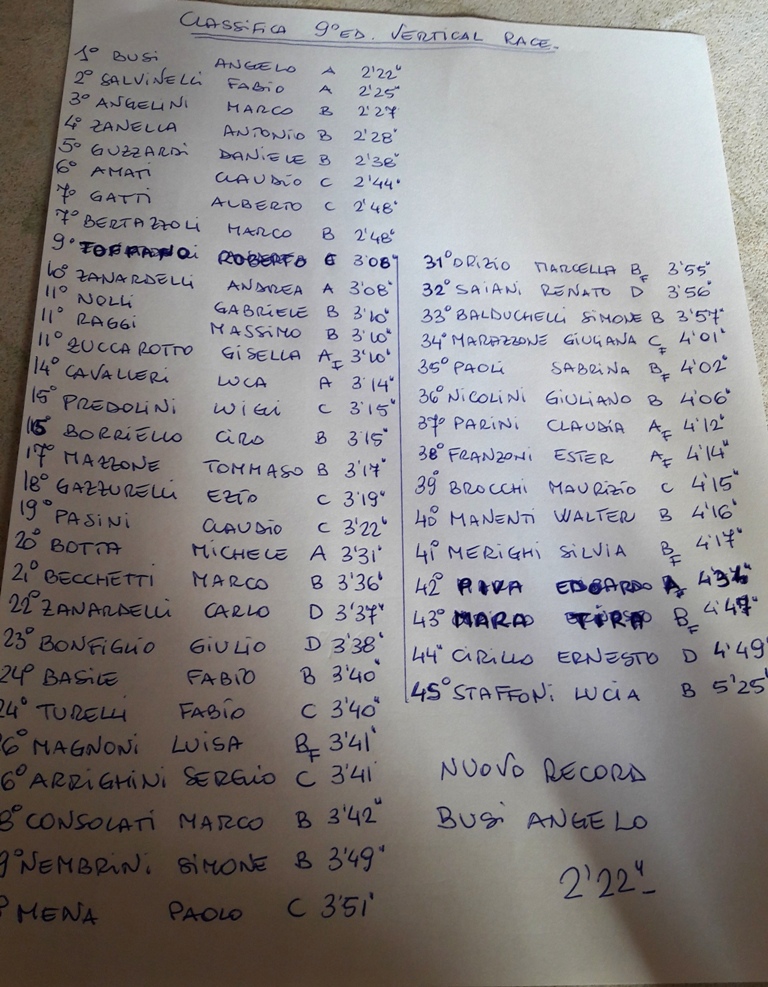 CLASSIFICA 9° ED. VERTICAL RACE.
1° BUSI ANGELO A 2'22"
2° SALVINELLI FABIO A 2'25"
3° ANGELINI MARCO B 2'27
4° ZANELLA ANTONIO B 2'28"
5° GUZZARDI DANIELE B 2'38"
6° AMATI CLAUDIO C 2'44"
7° GATTI ALBERTO C 2'48"
7° BERTAZZOLI MARCO B 2'48"
9° ROBERTO C 3'08"
10° ZANARDELLI ANDREA A 3'08"
11° NOLLI GABRIELE B 3'10"
11° RAGGI MASSIMO B 3'10"
11° ZUCCAROTTO GISELLA AF 3'10"
14° CAVALLERI LUCA A 3'14"
15° PREDOLINI LUIGI C 3'15"
15 BORRIELLO CIRO B 3'15"
17° MAZZONE TOMMASO B 3'17"
18° GAZZURELLI EZIO C 3'19"
19° PASINI CLAUDIO C 3'22"
20° BOTTA MICHELE A 3'31"
21° BECCHETTI MARCO B 3'36"
22° ZANARDELLI CARLO D 3'37"
23° BONFIGLIO GIULIO D 3'38"
24° BASILE FABIO B 3'40"
24° TURELLI FABIO C 3'40"
6° MAGNONI LUISA BF 3'41"
6° ARRIGHINI SERGIO C 3'41
8° CONSOLATI MARCO B 3'42"
9° NEMBRINI SIMONE B 3'49"
° MENA PAOLO C 3'51"
31° ORIZIO MARCELLA BF 3'55"
32° SAIANI RENATO D 3'56"
33° BALDUCHELLI SIMONE B 3'57"
34° MARAZZONE GIULIANA CF 4'01"
35° PAOLI SABRINA BF 4'02"
36° NICOLINI GIULIANO B 4'06"
37° PARINI CLAUDIA AF 4'12"
38° FRANZONI ESTER AF 4'14"
39° BROCCHI MAURIZIO C 4'15"
40° MANENTI WALTER B 4'16"
41° MERIGHI SILVIA BF 4'17"
42° PIVA EDOARDO A
43° MARA TIRA BF 4'47"
44° CIRILLO ERNESTO D 4'49"
45° STAFFONI LUCIA B 5'25"
NUOVO RECORD
BUSI ANGELO
2'22"